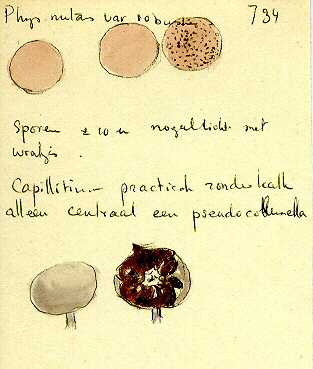 Phys nutans var robusta 794
Sporen ± 10 u nogal licht met
wratjes.
Capillitium practisch zonder kalk
alleen centraal een pseudocolumella